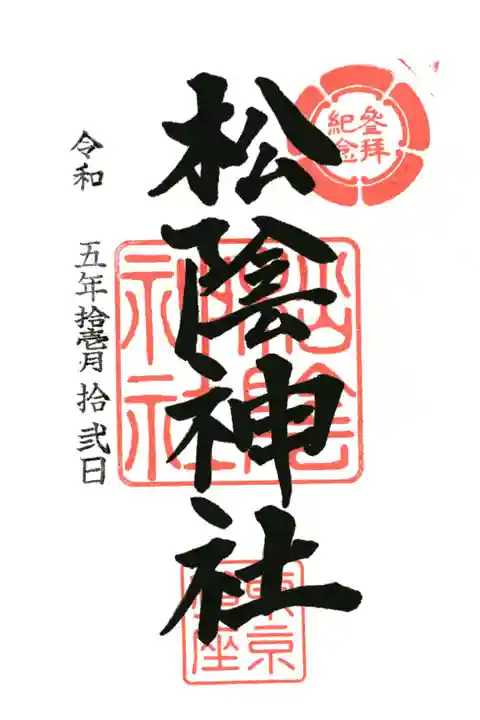 参拜
紀念
松陰神社
松陰
神社
東京
鎮座
令和 五年拾壱月拾弐日